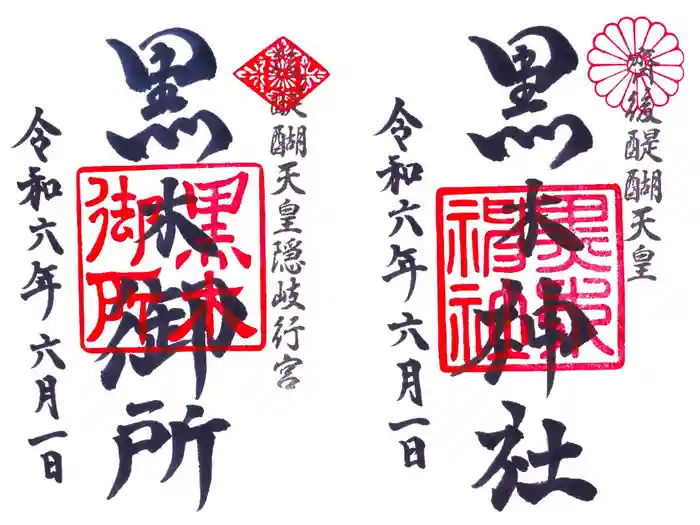 齋後醍醐天皇
黒木神社
令和六年六月一日
黒木神社
後醍醐天皇隠岐行宮
黒木御所
令和六年六月一日
黒木御所